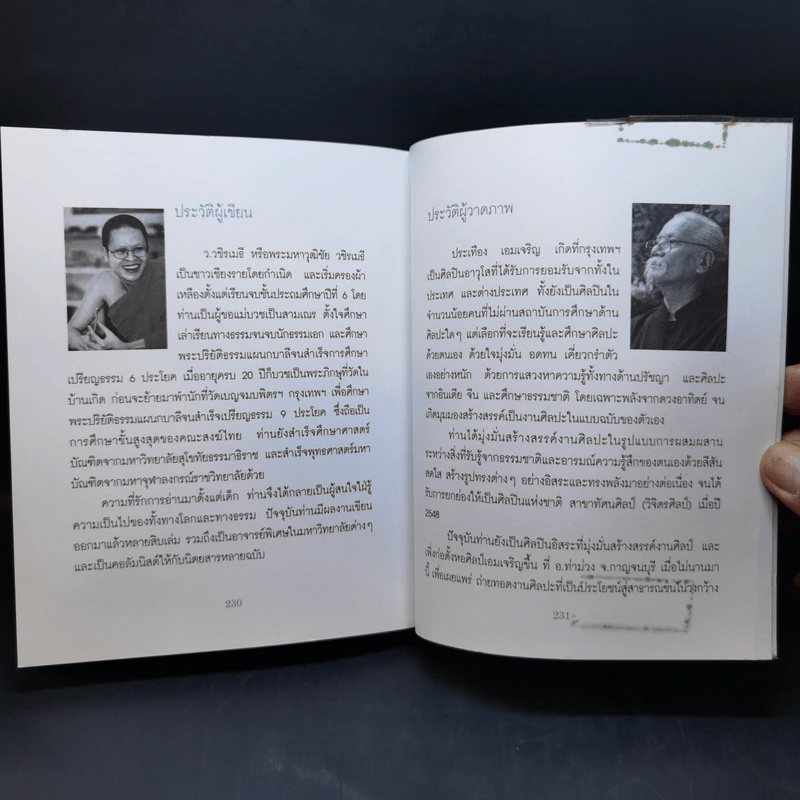 ประวัติผู้เขียน
ว.วชิรเมธี หรือพระมหาวุฒิชัย วชิรเมธี
เป็นชาวเชียงรายโดยกำเนิด และเริ่มครองผ้า
เหลืองตั้งแต่เรียนจบชั้นประถมศึกษาปีที่ 6 โดย
ท่านเป็นผู้ขอแม่บวชเป็นสามเณร ตั้งใจศึกษา
เล่าเรียนทางธรรมจนจบนักธรรมเอก และศึกษา
พระปริยัติธรรมแผนกบาลีจนสำเร็จการศึกษา
เปรียญธรรม 6 ประโยค เมื่ออายุครบ 20 ปีก็บวชเป็นพระภิกษุที่วัดใน
บ้านเกิด ก่อนจะย้ายมาพำนักที่วัดเบญจมบพิตรฯ กรุงเทพฯ เพื่อศึกษา
พระปริยัติธรรมแผนกบาลีจนสำเร็จเปรียญธรรม 9 ประโยค ซึ่งถือเป็น
การศึกษาชั้นสูงสุดของคณะสงฆ์ไทย ท่านยังสำเร็จศึกษาศาสตร์
บัณฑิตจากมหาวิทยาลัยสุโขทัยธรรมาธิราช และสำเร็จพุทธศาสตร์มหา
บัณฑิตจากมหาจุฬาลงกรณ์ราชวิทยาลัยด้วย
ความที่รักการอ่านมาตั้งแต่เด็ก ท่านจึงได้กลายเป็นผู้สนใจใฝ่รู้
ความเป็นไปของทั้งทางโลกและทางธรรม ปัจจุบันท่านมีผลงานเขียน
ออกมาแล้วหลายสิบเล่ม รวมถึงเป็นอาจารย์พิเศษในมหาวิทยาลัยต่างๆ
และเป็นคอลัมนิสต์ให้กับนิตยสารหลายฉบับ
230
ประวัติผู้วาดภาพ
ประเทือง เอมเจริญ เกิดที่กรุงเทพฯ
เป็นศิลปินอาวุโสที่ได้รับการยอมรับจากทั้งใน
ประเทศ และต่างประเทศ ทั้งยังเป็นศิลปินใน
จำนวนน้อยคนที่ไม่ผ่านสถาบันการศึกษาด้าน
ศิลปะใดๆ แต่เลือกที่จะเรียนรู้และศึกษาศิลปะ
ด้วยตนเอง ด้วยใจมุ่งมั่น อดทน เคี่ยวกรำตัว
เองอย่างหนัก ด้วยการแสวงหาความรู้ทั้งทางด้านปรัชญา และศิลปะ
จากอินเดีย จีน และศึกษาธรรมชาติ โดยเฉพาะพลังจากดวงอาทิตย์ จน
เกิดมุมมองสร้างสรรค์เป็นงานศิลปะในแบบฉบับของตัวเอง
ท่านได้มุ่งมั่นสร้างสรรค์งานศิลปะในรูปแบบการผสมผสาน
ระหว่างสิ่งที่รับรู้จากธรรมชาติและอารมณ์ความรู้สึกของตนเองด้วยสีสัน
สดใส สร้างรูปทรงต่างๆ อย่างอิสระและทรงพลังมาอย่างต่อเนื่อง จนได้
รับการยกย่องให้เป็นศิลปินแห่งชาติ สาขาทัศนศิลป์ (วิจิตรศิลป์) เมื่อปี
2548
ปัจจุบันท่านยังเป็นศิลปินอิสระที่มุ่งมั่นสร้างสรรค์งานศิลป์ และ
เพิ่งก่อตั้งหอศิลป์เอมเจริญขึ้น ที่ อ.ท่าม่วง จ.กาญจนบุรี เมื่อไม่นานมา
นี้ เพื่อเผยแพร่ ถ่ายทอดงานศิลปะที่เป็นประโยชน์สู่สาธารณชนในวงกว้าง
231